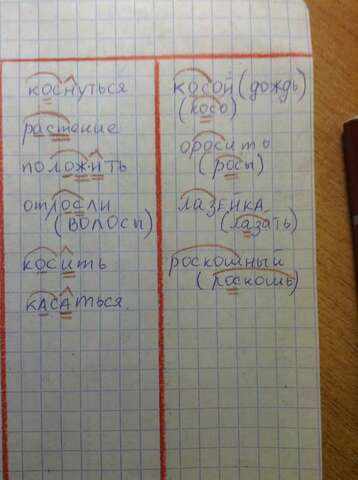 коснуться
растение
положить
отросли
(волосы)
косить
касаться
косой (дождь)
(косо)
оросить
(росы)
лазейка
(лазать)
роскошный
(роскошь)